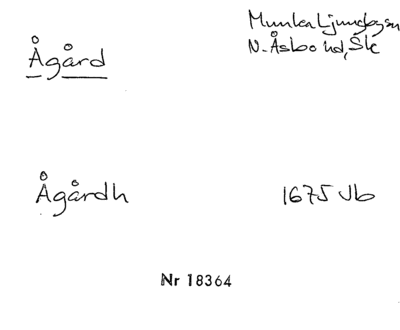 Ågård
Munka Ljungbysn
N. Åsbo hd, Sk
Ågårdh
1675 Jb
Nr 18364